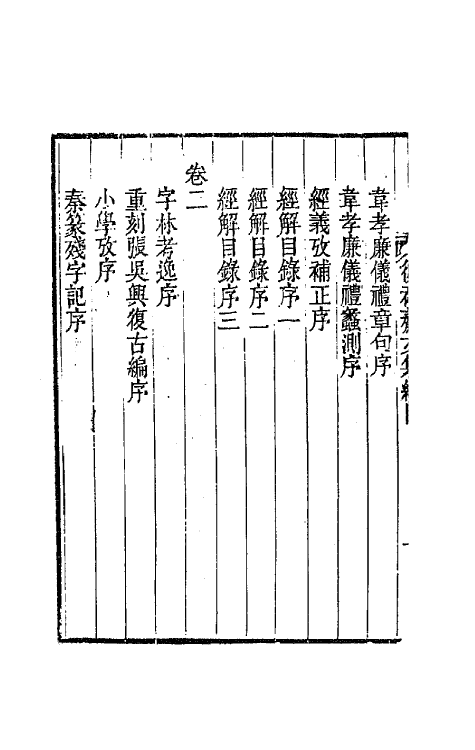 韋孝廉儀禮章句序
韋孝廉儀禮蠡測序
經義攷補正序
經解目錄序一
經解目錄序二
經解目錄序三
卷二
字林考逸序
重刻張吳興復古編序
小學攷序
秦篆殘字記序